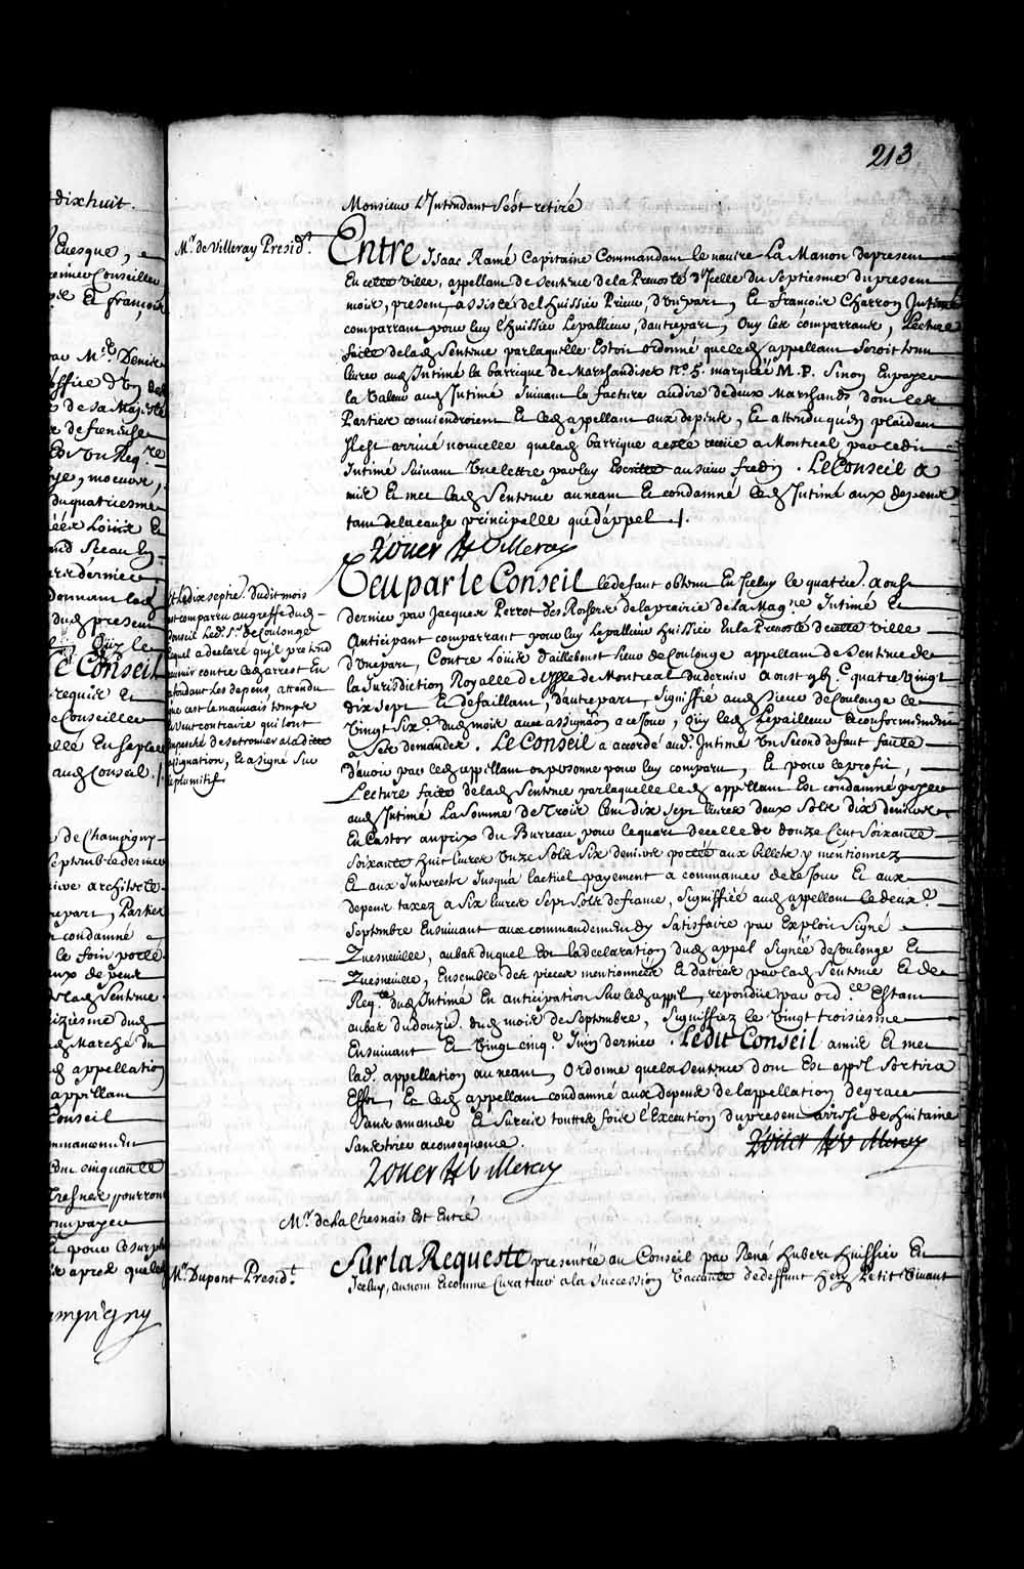 213
Monsieur L'Intendant s'est retiré
Mr. de Villeray Presidt.
Entre Isaac Ramé Capitaine Commandant le navire La Manon de present
En cette ville, appellant de Sentence de la Prevosté d'Icelle du Septiesme du present
mois, present, assisté de l'huissier Prieur d'Une part, Et françois Charron Intimé
comparrant pour luy l'huissier Lepallieur, d'autre part, Ouy les comparrants, Lecture
faite de lad. Sentence par laquelle Estoit ordonné que led. appellant seroit tenu
livrer aud. Intimé la barrique de Marchandises no. 5. marquée M.P. Sinon En payer
la Valeur aud. Intimé Suivant la facture au dire de deux Marchands dont les
Parties conviendroient Et led. appellant aux depens, Et attendu qu'En plaidant
Il est arrivé nouvelle que lad. barrique a esté receüe a Montreal par ledit
Intimé Suivant Une lettre par luy Escritte au sieur fredin. Le Conseil a
mis Et met lad. Sentence au neant Et condamné led. Intimé aux depens
tant de la cause principalle que d'appel ./.
Roüer de Villeray
Veu par le Conseil le defaut obtenu En Iceluy le quatre. Aoust
dernier par Jacques Perrot des Rochers de la prairie de la Mag.ne Intimé Et
Anticipant comparrant pour luy Lepallieur huissier En la Prevosté de cette ville
d'Une part, Contre Loüis d'ailleboust sieur de Coulonge appellant de Sentence de
la Jurisdiction Royalle de Montreal du dernier Aoust gbj.c quatre vingt
dix sept Et defaillant, d'autre part, Signiffié aud. Sieur de Coulonge le
Vingt Six.e dud. mois avec assignation a ce Jour, Ouy led. Lepallieur Et conformement
a ses demandes. Le Conseil a accordé aud. Intimé Un Second defaut faute
d'avoir par led. appellant ou personne pour luy comparu, Et pour le profit,
Lecture faite de lad. Sentence par laquelle led. appellant Est condamné payer
aud. Intimé La Somme de Trois Cent dix Sept livres deux sols dix deniers
En Castor au prix du Bureau pour le quart de celle de douze Cent Soixante
Soixante huit livres Unze Sols Six deniers portée aux billets y mentionnez
Et aux Interests Jusqu'a l'actuel payement a commancer de ce Jour Et aux
depens taxez a Six livres Sept Sols de france, Signiffiée aud. appellant le deux.e
Septembre Ensuivant avec commandement d'y Satisfaire par Exploit Signé
Quesneville, au bas duquel Est la declaration dud. appel Signée de Coulonge Et
Quesneville, Ensemble des pieces mentionnées Et dattées par lad. Sentence Et de
Req.te dud. Intimé En anticipation Sur led. appel, repondüe par ord.ce Estant
au bas du douzie. dud. mois de Septembre, Signiffiez le Vingt troisiesme
Ensuivant Et Vingt cinq.e Juin dernier. Ledit Conseil a mis Et met
lad. appellation au neant, Ordonne que la Sentence dont Est appel Sortira
Effet, Et led. appellant condamné aux depens de l'appellation de grace
Sans amande Et Surcis touttes fois l'Execution du present arrest de huitaine
Sans tirer a consequence.
Roüer de Villeray
Roüer de Villeray
Et le dix septie. dudit mois
est comparu au greffe dud.
Conseil Led. Sr. de Coulonge
Lequel a declaré qu'il pretend
revenir contre led. arrest En
refondant Les depens, attendu
que c'est le mauvais temps Et
le Vent contraire qui l'ont
empesché de se trouver a ladite
assignation, Et a Signé Sur
le plumitif
Mr. de la Chesnais Est Entré
Mr. Dupont Presidt.
Sur la Requeste presentée au Conseil par René hubert huissier En
Iceluy, au nom Et comme Curateur a la Succession Vaccante de deffunt Petit Vivant
dix huit.
Evesque, a
premier Conseiller
Et françois
Mr. Denis
office d'Un
de sa Majesté
de freneuse
Un Req.te
vye, moeurs,
du quatriesme
Loüis Et
Sceau
dernier
dud. present
Oüy le
Le Conseil
requis Et
Conseiller
En sa place
aud. Conseil ./.
de Champigny
Septembre dernier
architecte
part, Parties
condamné
le foin porté
aux depens
lad. Sentence
dud.
Marché du
appellation
appellant
Conseil
commancement
cinquante
pourront
En payer
Et pour le surplus
apres que led.
Champigny